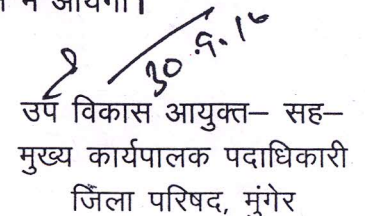 में आयेगा।
30.9.16
उप विकास आयुक्त– सह–
मुख्य कार्यपालक पदाधिकारी
जिला परिषद, मुंगेर